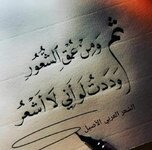 ثم
وَمِنْ عُمْقِ الشُّعُورِ
وَدَدْتُ لَوْ أَنِّي لَا أَشْعُرُ
الشعر العربي الأصيل